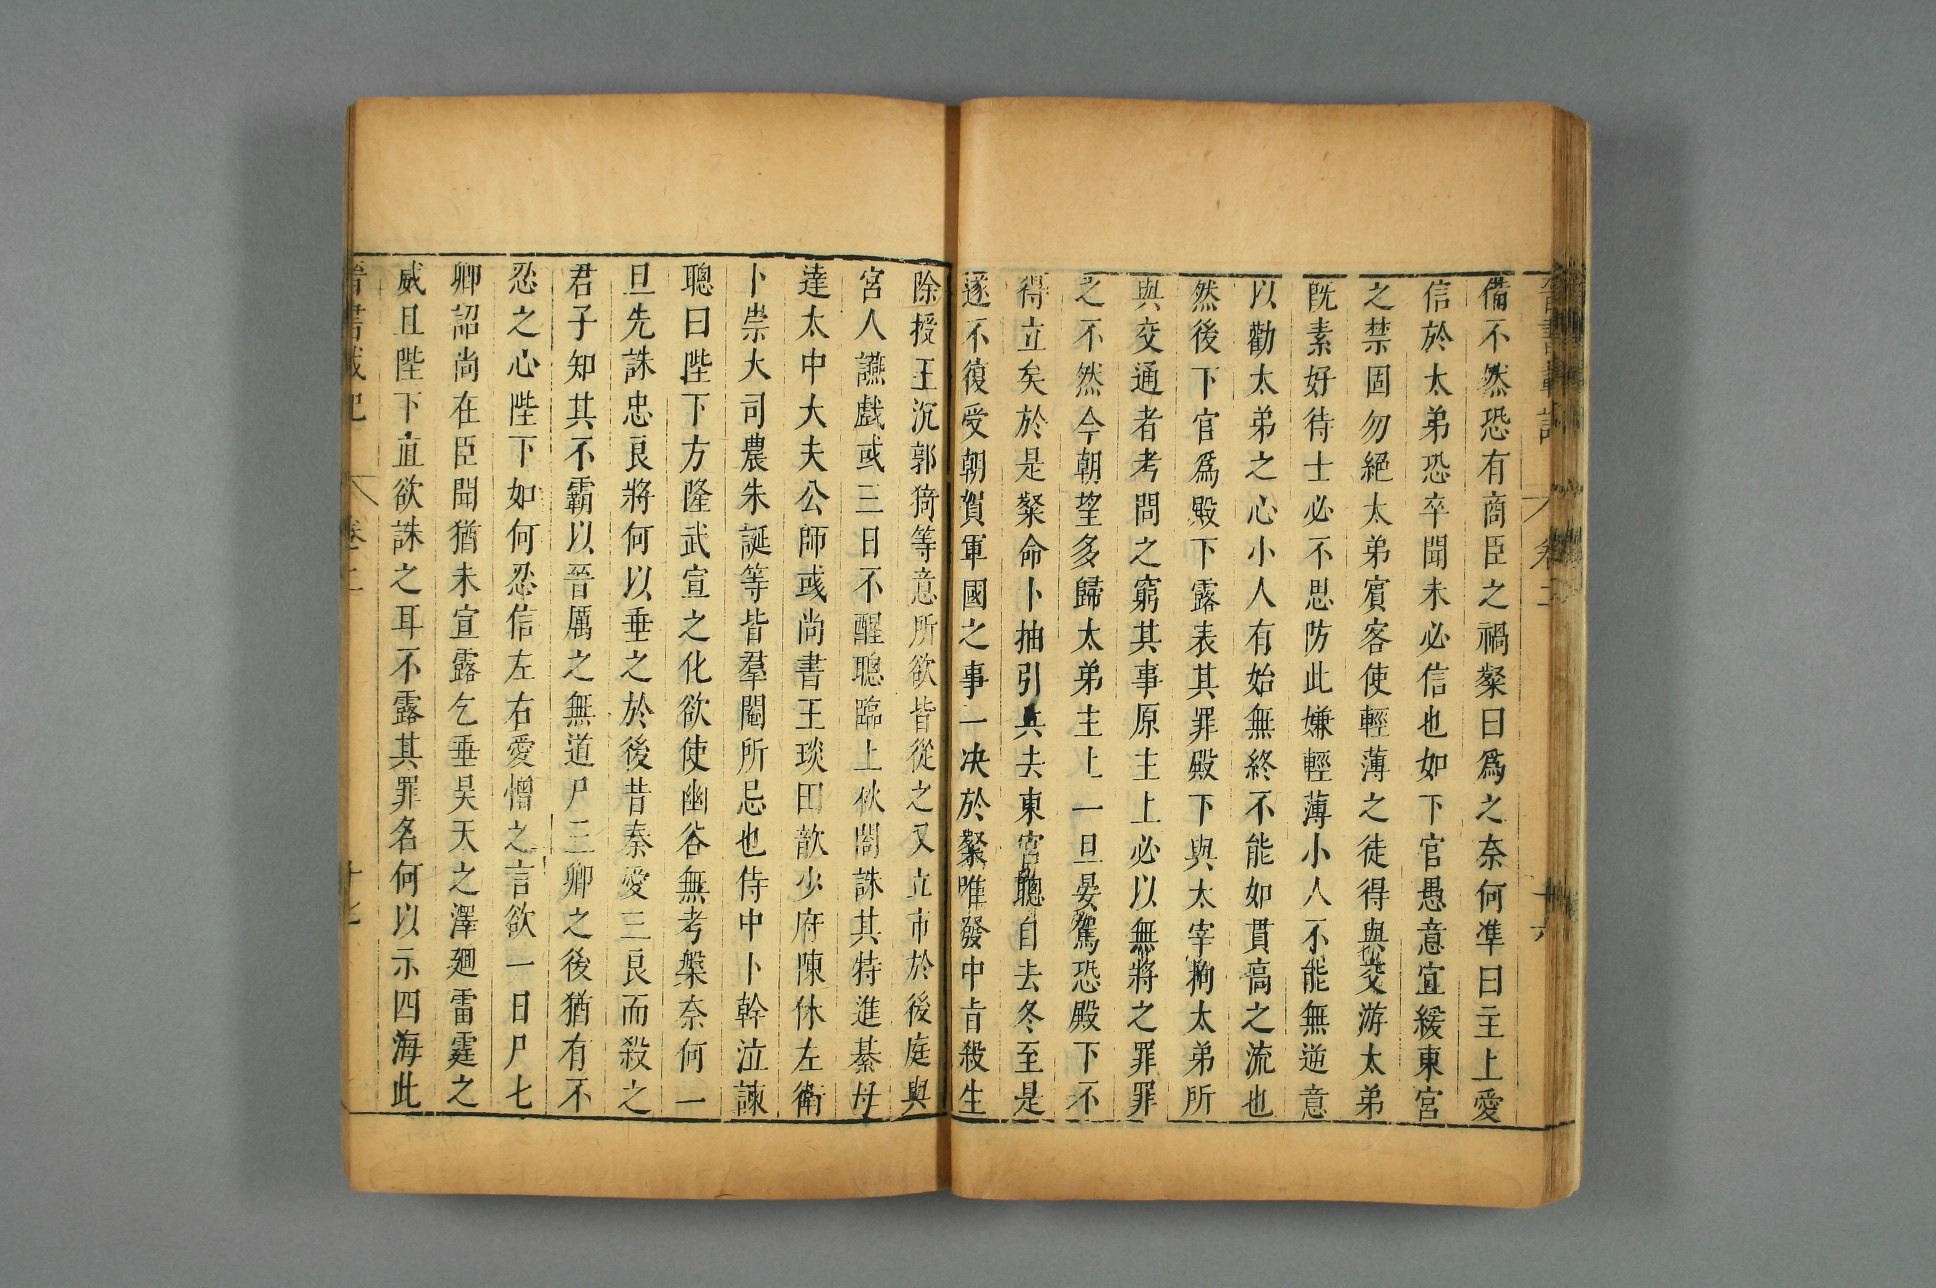 晉書載記
卷二
十六
備不然恐有商臣之禍粲曰爲之奈何準曰主上愛
信於太弟恐卒聞未必信也如下官愚意宜緩東宮
之禁固勿絕太弟賓客使輕薄之徒得與交游太弟
旣素好待士必不思防此嫌輕薄小人不能無逆意
以勸太弟之心小人有始無終不能如貫高之流也
然後下官爲殿下露表其罪殿下與太宰拘太弟所
與交通者考問之窮其事原主上必以無將之罪罪
之不然今朝望多歸太弟主上一旦晏駕恐殿下不
得立矣於是粲命卜抽引兵去東宮聰自去冬至是
遂不復受朝賀軍國之事一決於粲唯發中旨殺生
除授王沉郭猗等意所欲皆從之又立市於後庭與
宮人讌戲或三日不醒聰臨上秋閤誅其特進綦毋
達太中大夫公師彧尚書王琰田歆少府陳休左衛
卜崇大司農朱誕等皆羣閹所忌也侍中卜幹泣諫
聰曰陛下方隆武宣之化欲使幽谷無考槃奈何一
旦先誅忠良將何以垂之於後昔秦愛三良而殺之
君子知其不霸以晉厲之無道尸三卿之後猶有不
忍之心陛下如何忍信左右愛憎之言欲一日尸七
卿詔尚在臣間猶未宣露乞垂昊天之澤廻雷霆之
威且陛下直欲誅之耳不露其罪名何以示四海此
晉書載記
卷二
十七